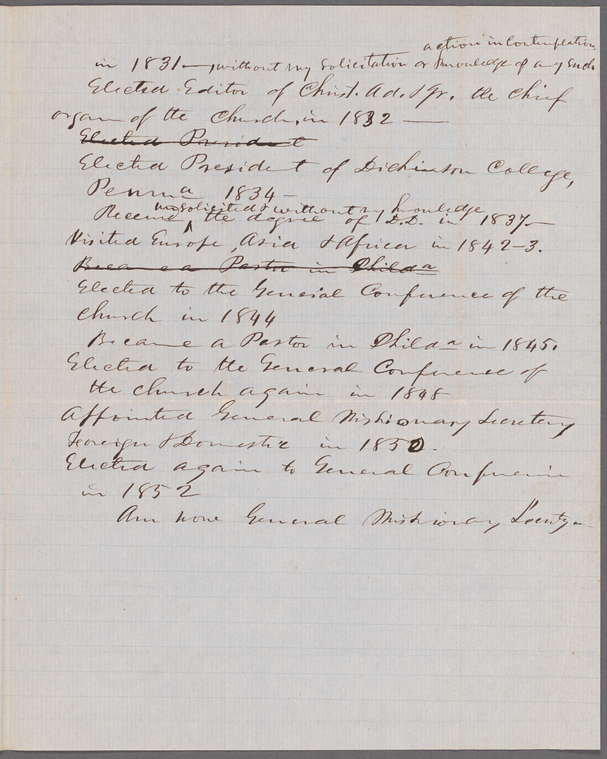 action in contemplation
in 1831—, without my solicitation or knowledge of any such
Elected Editor of Christ. Ad. & Jr. the chief
organ of the Church, in 1832 —
Elected President
Elected President of Dickinson College,
Penna 1834—
unsolicited & without my knowledge
Receive the degree of D.D. in 1837—
Visited Europe, Asia & Africa in 1842–3.
Became a Pastor in Phila
Elected to the General Conference of the
Church in 1844
Became a Pastor in Philda in 1845.
Elected to the General Conference of
the church again in 1848
Appointed General Missionary Secretary
Foreign & Domestic in 1850.
Elected again to General Conference
in 1852
Am now General Missionary Secrety—